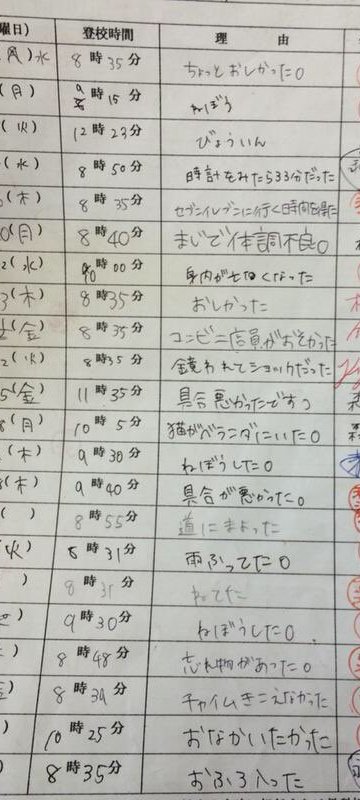 曜日) 登校時間 理 由
(火)水 8時35分 ちょっとおしかった。
(月) 9時15分 ねぼう
(火) 12時23分 びょういん
(水) 8時50分 時計をみたら33分だった
(木) 8時35分 セブンイレブンに行く時間を得た
0(月) 8時40分 まじで体調不良。
2(水) 10時00分 身内が亡くなった
3(木) 8時35分 おしかった
(金) 8時35分 コンビニ店員がおそかった
2(火) 8時35分 鏡われてショックだった
5(金) 11時35分 具合悪かったですっ
8(月) 10時5分 猫がベランダにいた。
(木) 9時30分 ねぼうした。
(木) 9時40分 具合が悪かった。
( ) 8時55分 道にまよった
火) 8時31分 雨ふってた。
) 8時35分 ねてた
) 9時30分 ねぼうした。
) 8時48分 忘れ物があった。
) 8時39分 チャイムきこえなかった
) 10時25分 おなかいたかった
) 8時35分 おふろ入った